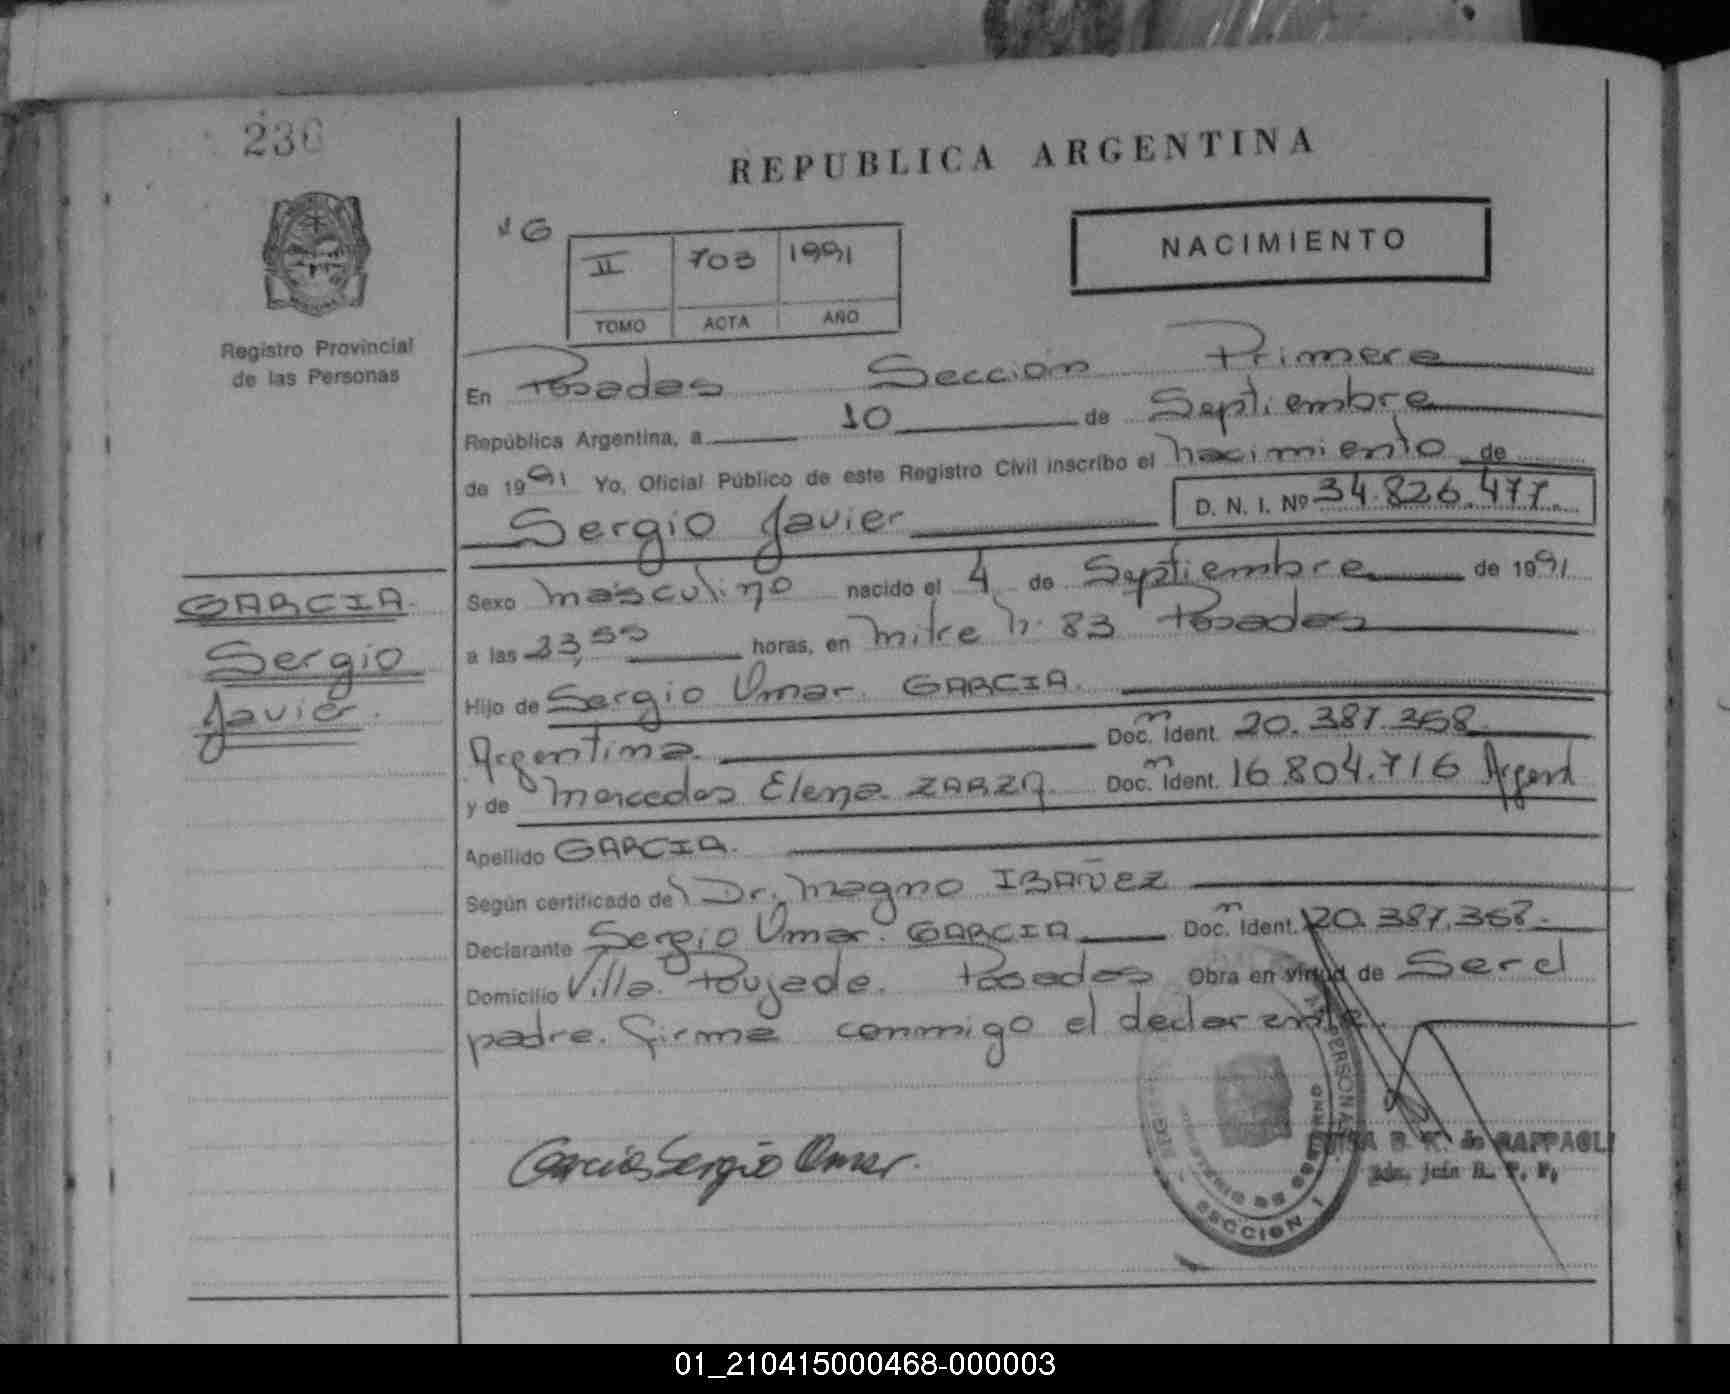 236
REPUBLICA ARGENTINA
NACIMIENTO
II 703 1991
TOMO ACTA AÑO
Registro Provincial
de las Personas
En Posadas Sección Primera
República Argentina, a 10 de Septiembre
de 1991 Yo, Oficial Público de este Registro Civil inscribo el nacimiento de
Sergio Javier D. N. I. Nº 34.826.477
GARCIA
Sergio
Javier
Sexo masculino nacido el 4 de Septiembre de 1991
a las 23,55 horas, en Mitre n. 83 Posadas
Hijo de Sergio Omar GARCIA
Argentina Doc. Ident. 20.387.368
y de Mercedes Elena ZARZA Doc. Ident. 16.804.716 Argent
Apellido GARCIA
Según certificado del Dr. Magno IBAÑEZ
Declarante Sergio Omar GARCIA Doc. Ident. 20.387.368
Domicilio Villa Poujade. Posadas Obra en virtud de Ser el
padre. Firma conmigo el declarante.
Garcia Sergio Omar
PERSONAS
MINISTERIO DE GOBIERNO
SECCION 1
B. K. de RAPPAGLI
R. P. P.
01_210415000468-000003